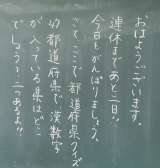 おはようございます。
連休まであと二日!!
今日もがんばりましょう。
さて、ここで都道府県クイズ
47都道府県で漢数字
が入っている県はどこ
でしょう?二つあるよ!!